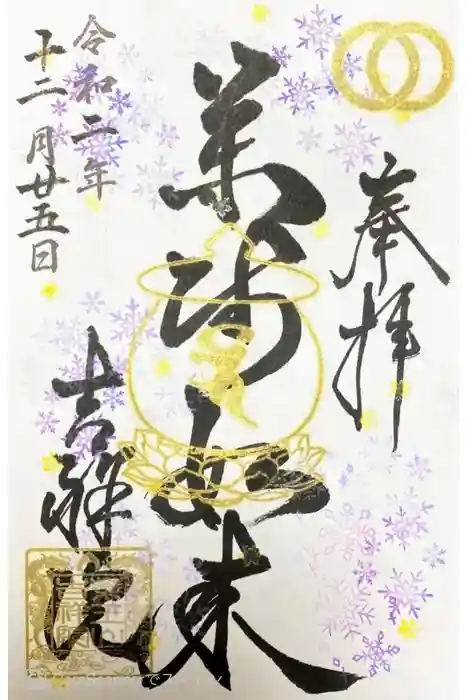 奉拝
薬師如来
令和二年
十二月廿五日
吉祥院